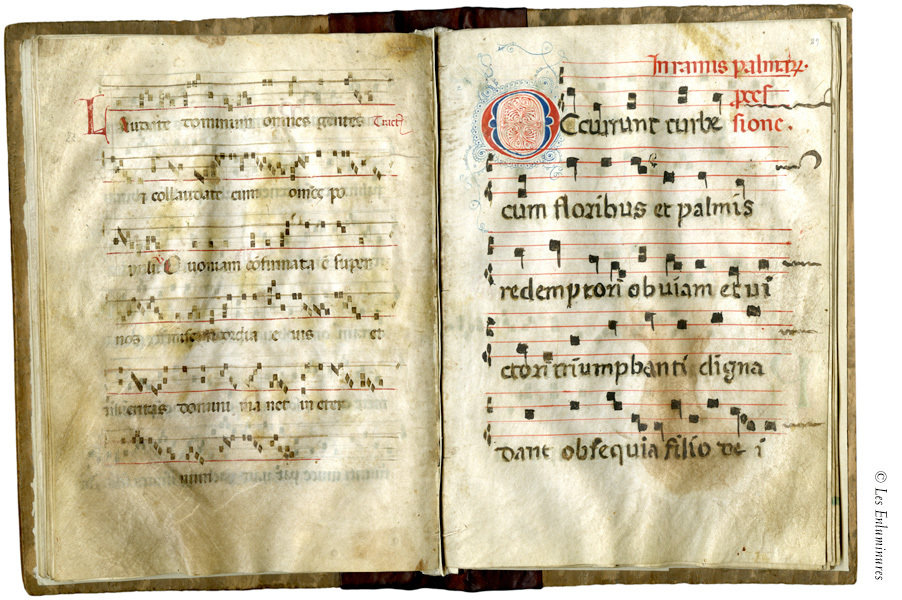 Laudate dominum omnes gentes Tract
et collaudate eum omnes po
puli Quoniam cōfirmata ē super
nos misericordia eius et
ueritas domini manet in eter
num
29
In ramis palmarꝝ.
OCcurrunt turbe pcessione.
cum floribus et palmis
redemptori obuiam et ui
ctori triumphanti digna
dant obsequia filio de i
© Les Enluminures